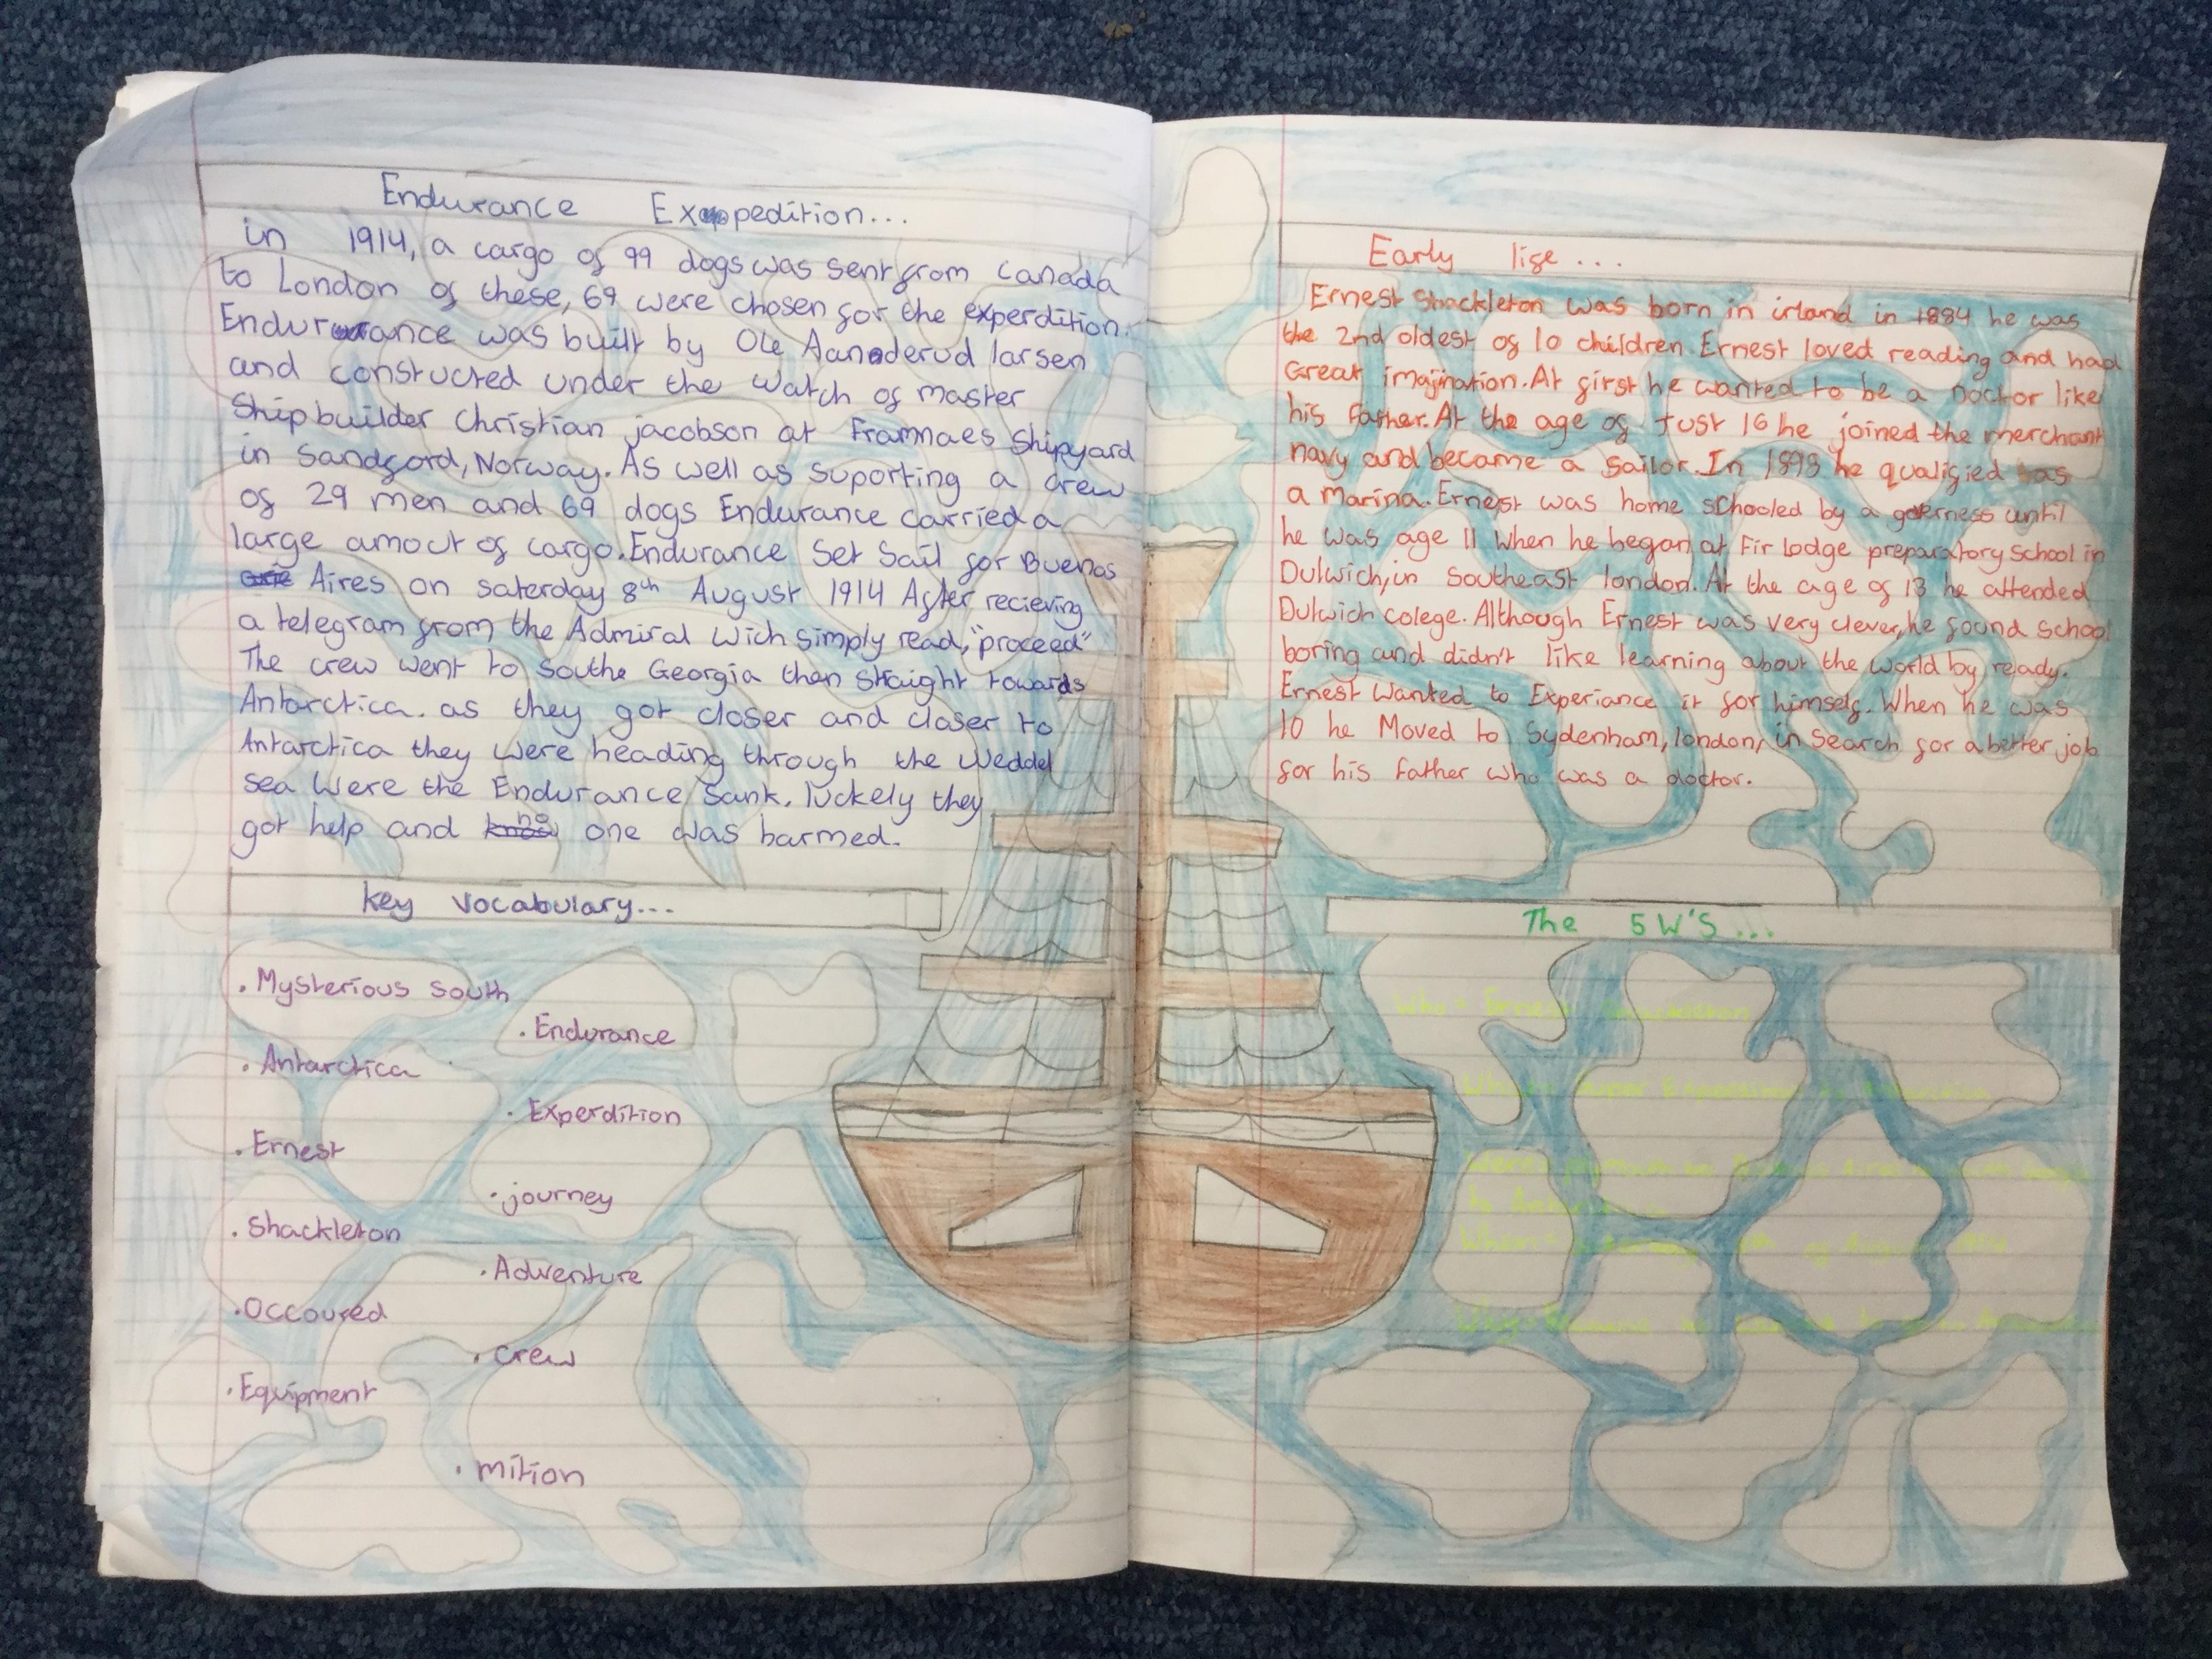 Endurance Expedition...
in 1914, a cargo of 99 dogs was sent from Canada
to London of these, 69 were chosen for the experdition.
Endurance was built by Ole Aanderud larsen
and constucted under the watch of master
Shipbuilder Christian jacobson at Framnaes Shipyard
in Sandford, Norway. As well as suporting a crew
of 29 men and 69 dogs Endurance carried a
large amout of cargo. Endurance Set Sail for Buenos
Aires on saterday 8th August 1914 After recieving
a telegram from the Admiral wich simply read, "proceed"
The crew went to Southe Georgia then straight towards
Antarctica. as they got closer and closer to
Antarctica they were heading through the weddel
sea Were the Endurance Sank. luckely they
got help and no one was harmed.
key vocabulary...
• Mysterious South
• Endurance
• Antarctica
• Experdition
• Ernest
• journey
• Shackleton
• Adventure
• Occoured
• crew
• Equipment
• mition
Early life...
Ernest Shackleton was born in irland in 1884 he was
the 2nd oldest of 10 children Ernest loved reading and had
Great imajination. At first he wanted to be a Doctor like
his Father. At the age of Just 16 he joined the merchant
navy and became a sailor. In 1898 he qualified as
a Marina. Ernest was home schooled by a governess until
he was age 11 when he began at Fir lodge preparatory school in
Dulwich, in southeast london. At the age of 13 he attended
Dulwich colege. Although Ernest was very clever, he found school
boring and didn't like learning about the world by
Ernest wanted to Experiance it for himself. When he was
10 he Moved to Sydenham, london, in search for a better job
for his father who was a doctor.
The 5 W'S...
Who = Ernest Shackleton